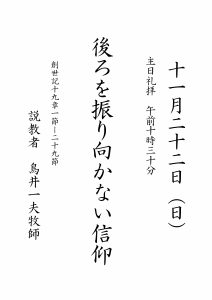 十一月二十二日（日）
主日礼拝　午前十時三十分
後ろを振り向かない信仰
創世記十九章一節－二十九節
説教者　鳥井一夫牧師